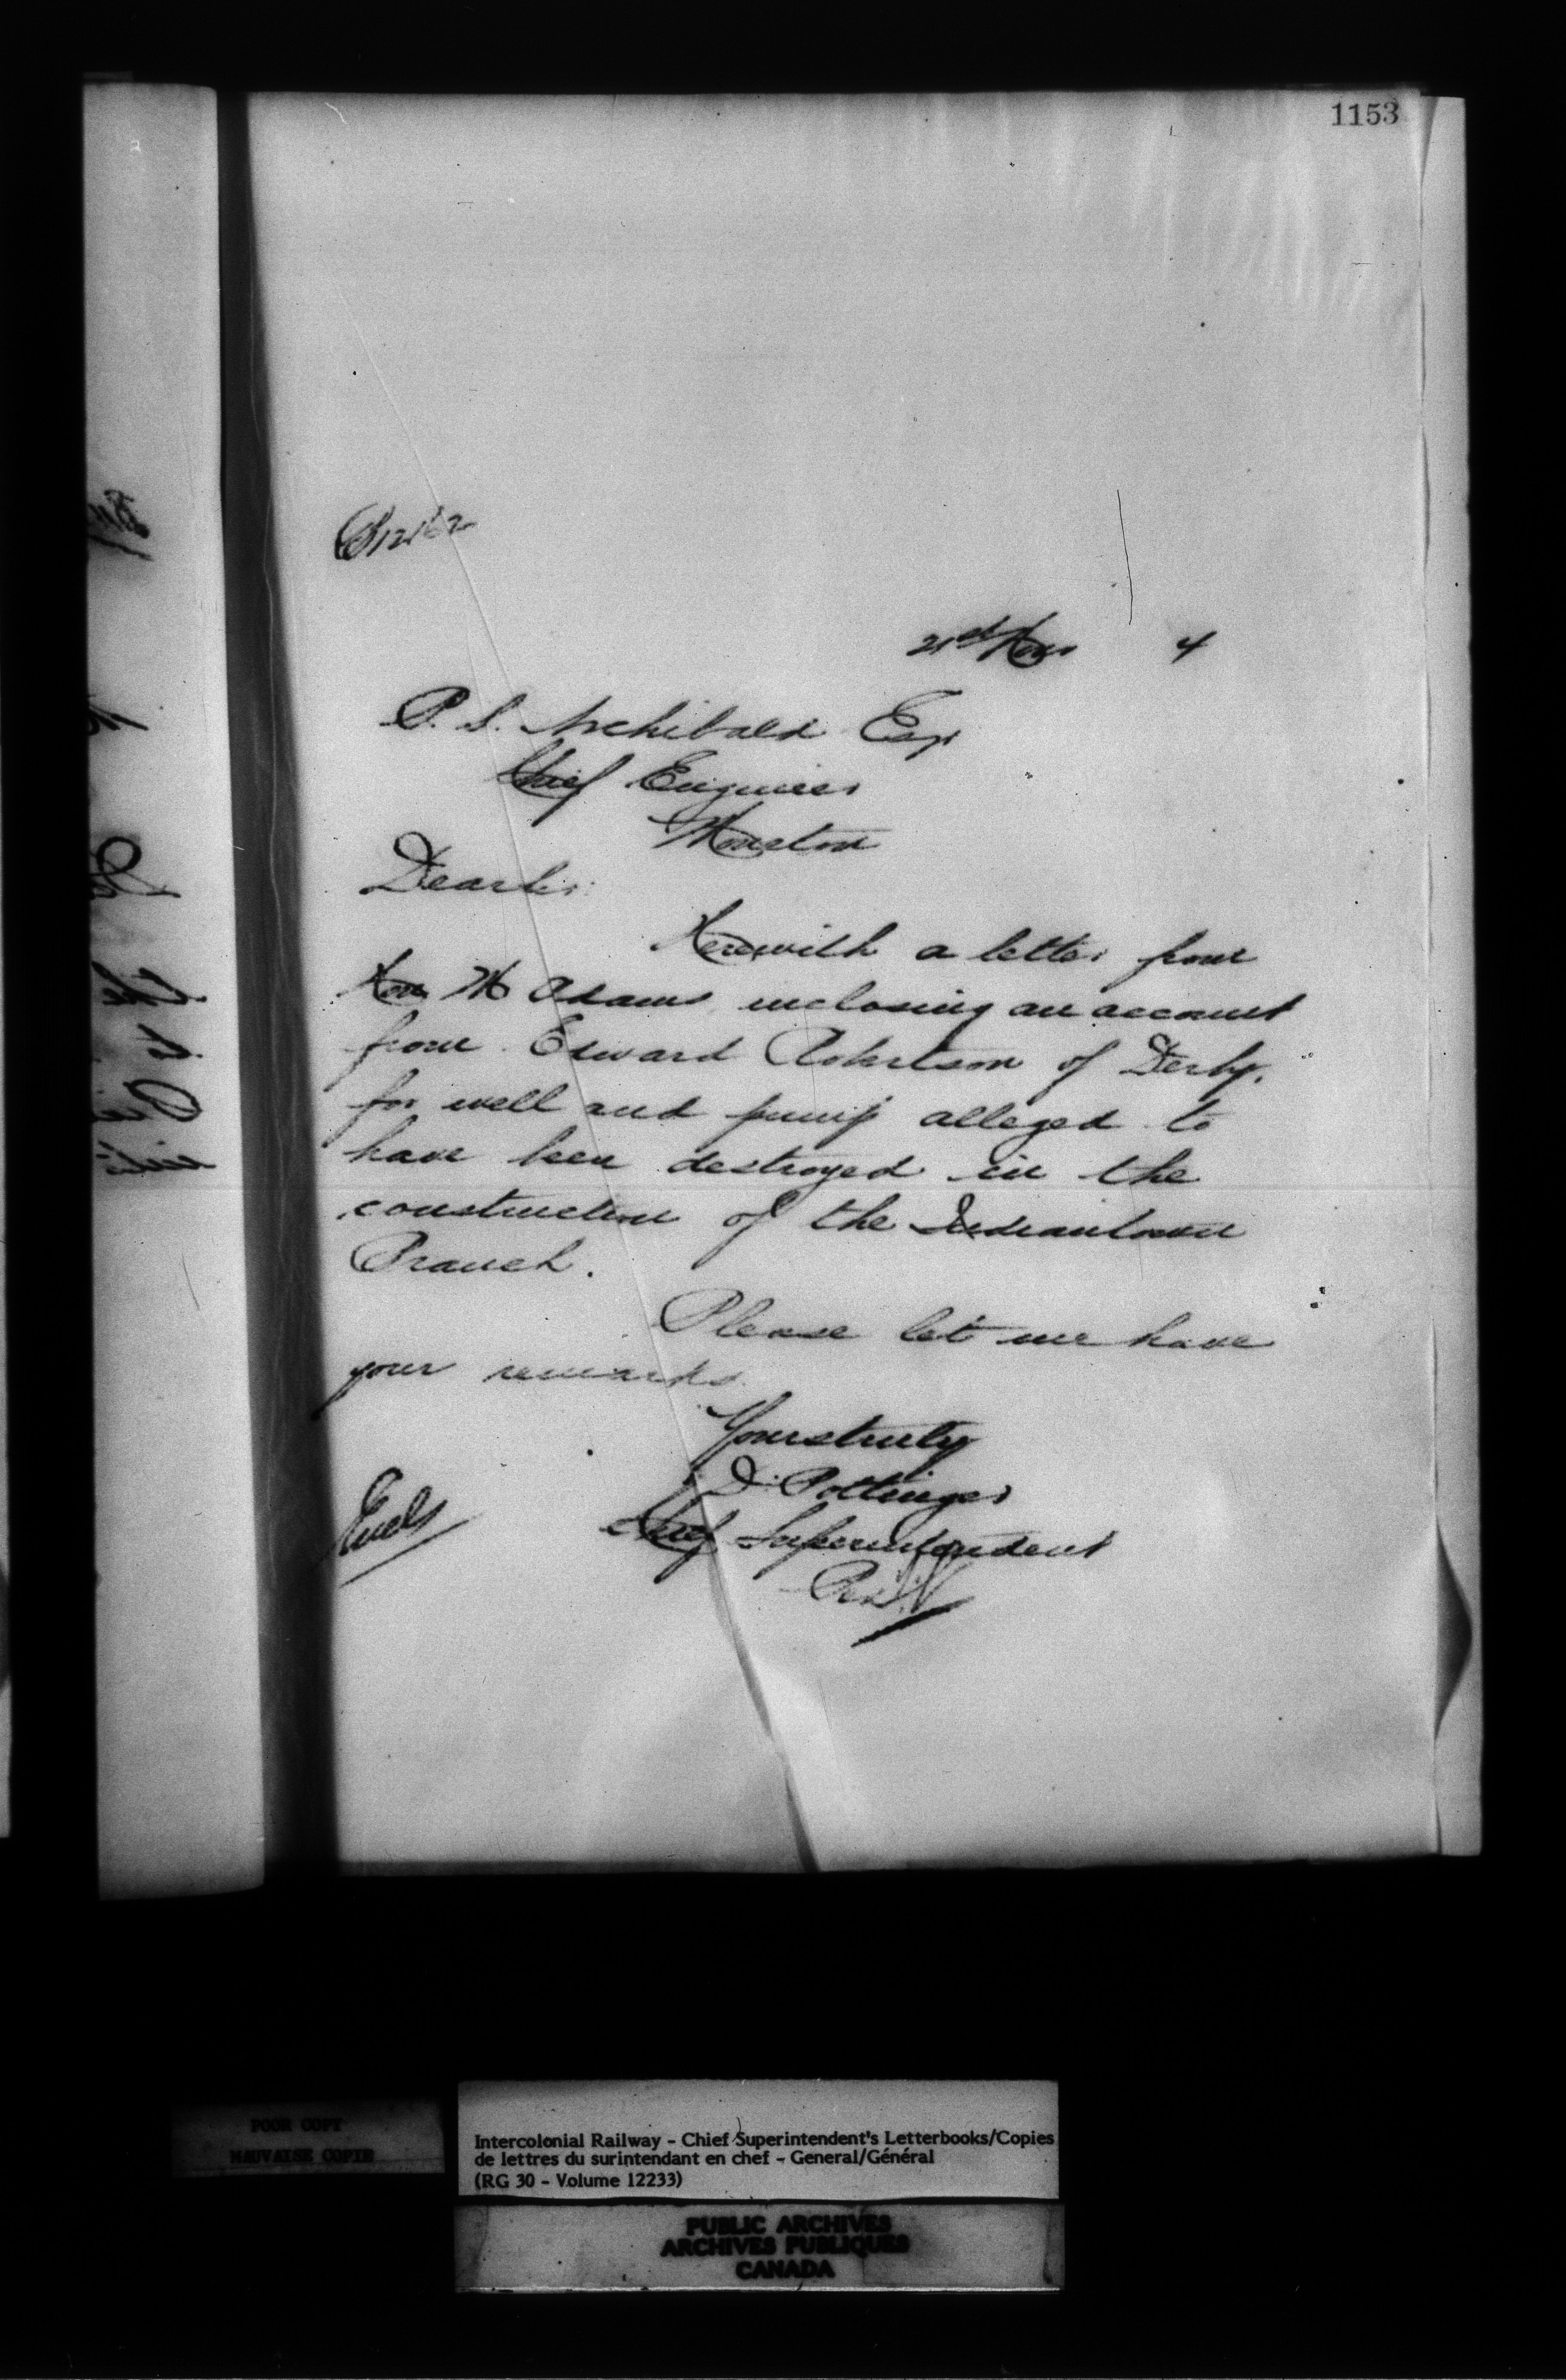 1153
21st Nov 4
P. S. Archibald Esqr
Chief Engineer
Moncton
Dear Sir:
Herewith a letter from
Hon M Adams inclosing an account
from Edward Robertson of Derby.
for well and pump alleged to
have been destroyed in the
construction of the Indiantown
Branch.
Please let me have
your remarks.
Yours truly
D. Pottinger
Chief Superintendent
Encls
POOR COPY
MAUVAISE COPIE
Intercolonial Railway - Chief Superintendent's Letterbooks/Copies
de lettres du surintendant en chef - General/Général
(RG 30 - Volume 12233)
PUBLIC ARCHIVES
ARCHIVES PUBLIQUES
CANADA